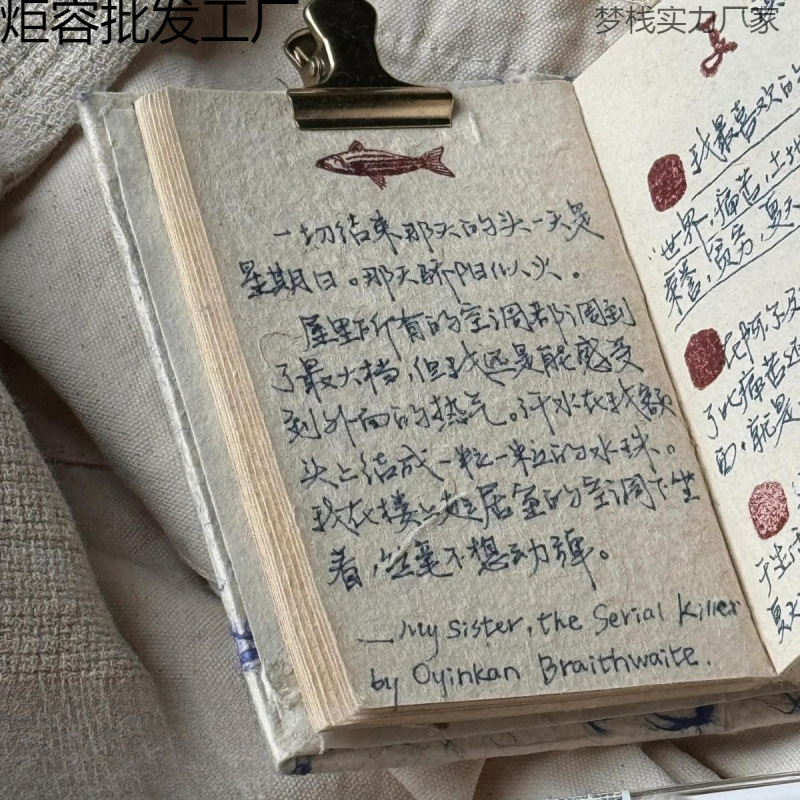 炬容批发工厂
梦栈实力厂家
一切结束那天的头一天是
星期日。那天骄阳似火。
屋里所有的空调都调到
了最大档,但我还是能感受
到外面的热气。汗水在我额
头上结成一粒一粒的水珠。
我在楼上起居室的空调下坐
着,丝毫不想动弹。
—My sister, the Serial Killer
by Oyinkan Braithwaite.
我最喜欢的
"世界,痛苦,土地
荣誉,贫穷,夏天
了比痛苦还
面,就是
于生
夏天